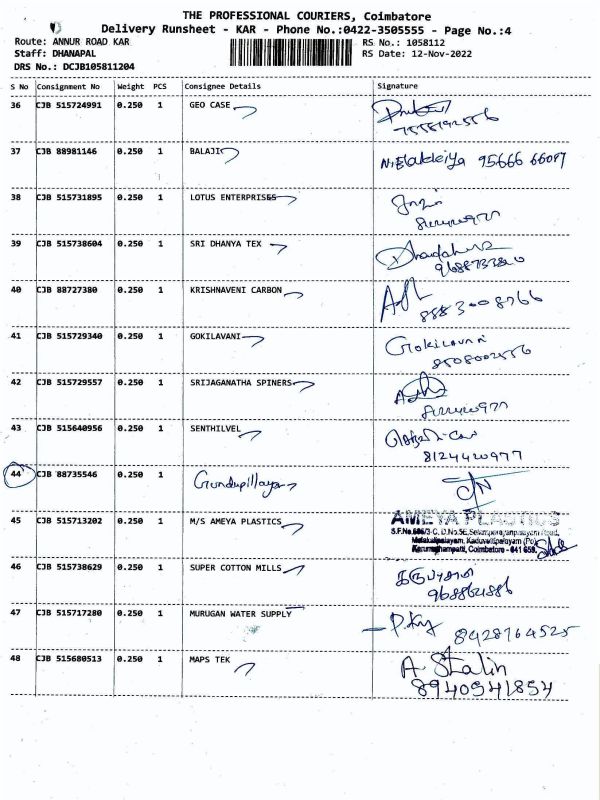 THE PROFESSIONAL COURIERS, Coimbatore
Delivery Runsheet - KAR - Phone No.:0422-3505555 - Page No.:4
Route: ANNUR ROAD KAR RS No.: 1058112
Staff: DHANAPAL RS Date: 12-Nov-2022
DRS No.: DCJB105811204
S No Consignment No Weight PCS Consignee Details Signature
36 CJB 515724991 0.250 1 GEO CASE
37 CJB 88981146 0.250 1 BALAJI N.Elakkiya 95666 66087
38 CJB 515731895 0.250 1 LOTUS ENTERPRISES
39 CJB 515738604 0.250 1 SRI DHANYA TEX
40 CJB 88727380 0.250 1 KRISHNAVENI CARBON
41 CJB 515729340 0.250 1 GOKILAVANI Gokilavani
8508002556
42 CJB 515729557 0.250 1 SRIJAGANATHA SPINERS
43 CJB 515640956 0.250 1 SENTHILVEL
8124420977
44 CJB 88735546 0.250 1 Gundupillayar
45 CJB 515713202 0.250 1 M/S AMEYA PLASTICS AMEYA PLASTICS
Coimbatore - 641 659.
46 CJB 515738629 0.250 1 SUPER COTTON MILLS
47 CJB 515717280 0.250 1 MURUGAN WATER SUPPLY
8428764525
48 CJB 515680513 0.250 1 MAPS TEK A. Stalin
8940541854